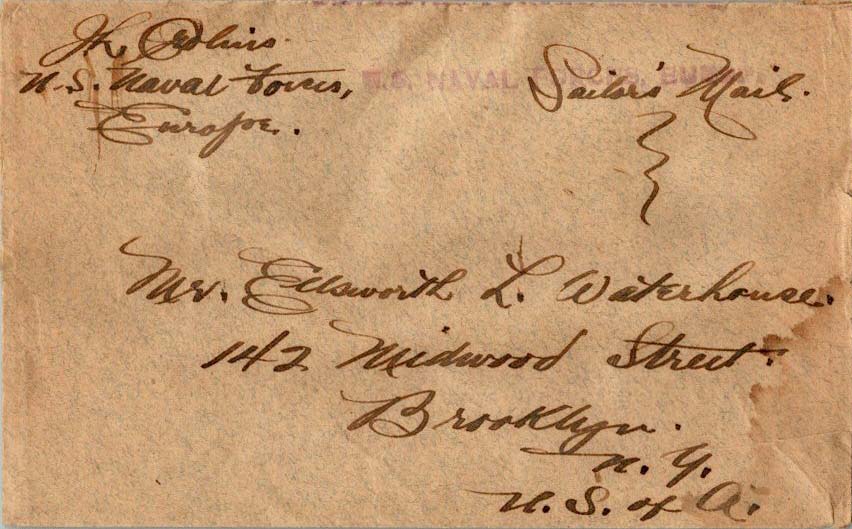 U.S. Naval Forces,
Europe.
U.S. NAVAL FORCES, EUROPE
Sailor's Mail.
Mr. Ellsworth L. Waterhouse.
142 Midwood Street.
Brooklyn.
N. Y.
U. S. of A.